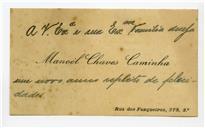 A V. Exª e sua Exma Familia deseja
Manoel Chaves Caminha
um novo anno repleto de felici-
dades.
Rua dos Fanqueiros, 278, 2º